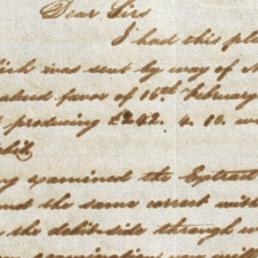 Dear Sirs
I had this ple
ich was sent by way of N
alued favor of 16th February
producing £242. 4. 10. w
ng examined the Extract
nd the same correct with
the debit side through w